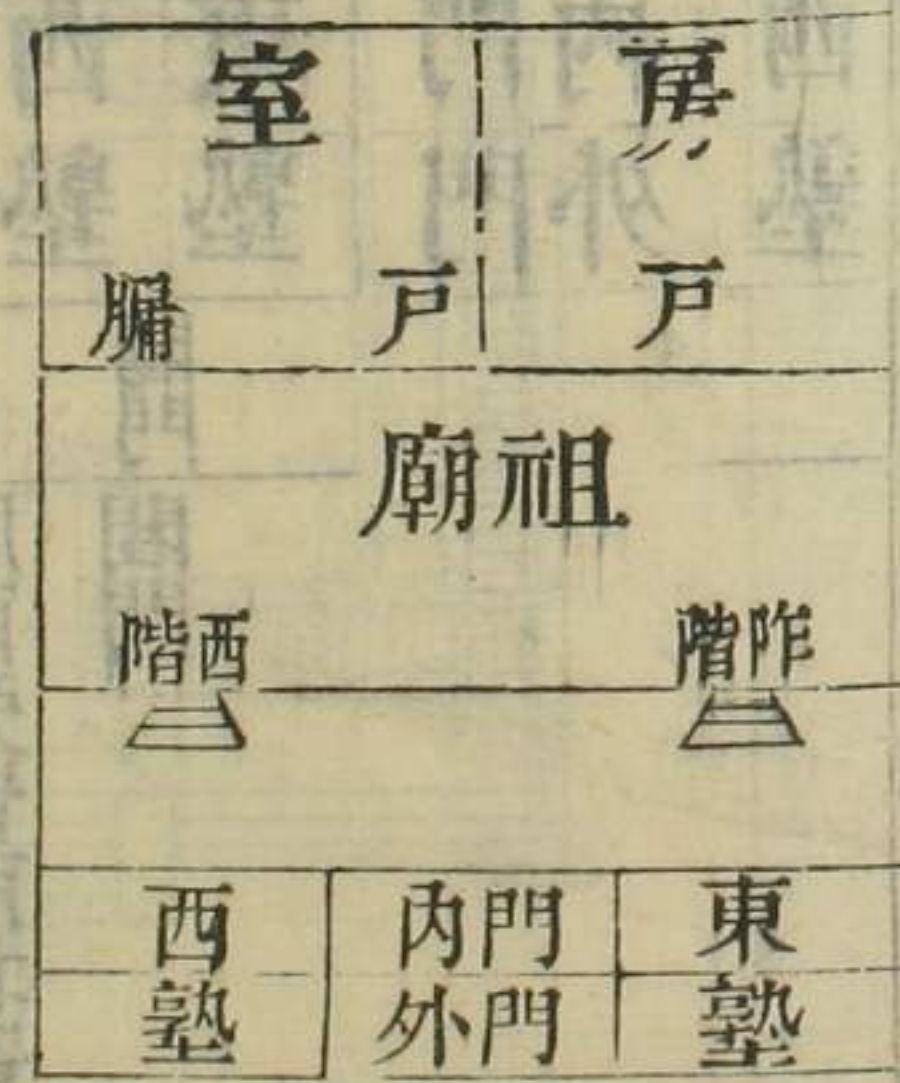 房
室
戸
戸
牖
祖廟
阼階
西階
東塾
門內
門外
西塾